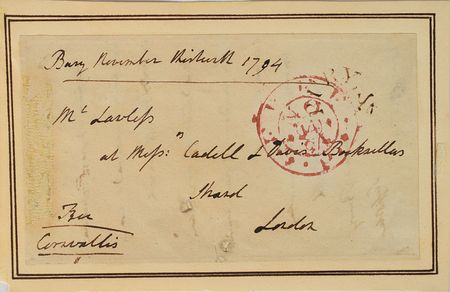 Bury November thirteth 1794
Mr Lawless
at Messrs Cadell & Davies Booksellers
Strand
London
Free
Cornwallis